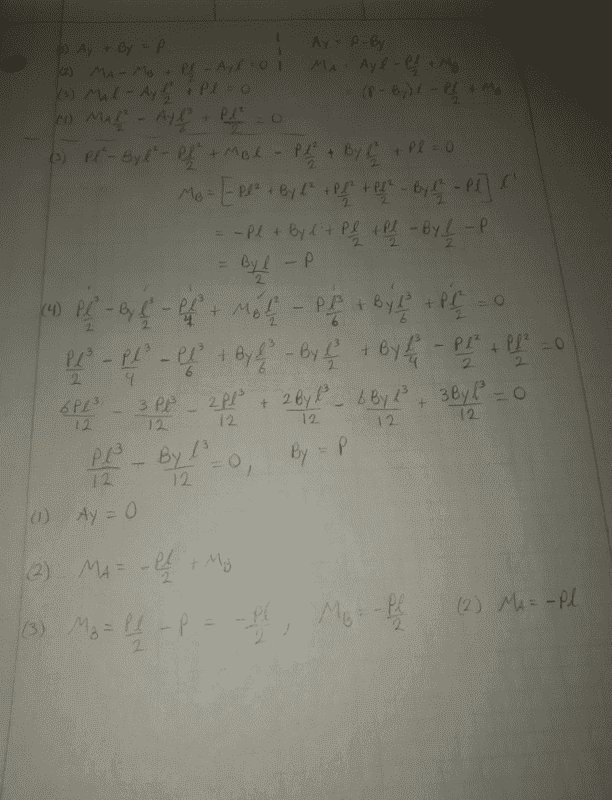 (1) Ay + By = P    Ay = P - By
(2) MA - MB + Pl/2 - Ayl = 0    MA = Ayl - Pl/2 + MB
(3) MAl - Ayl²/2 + Pl = 0    = (P - By)l - Pl/2 + MB
(4) MAl²/2 - Ayl³/6 + Pl²/2 = 0
(3) Pl² - Byl² - Pl²/2 + MBl - Pl²/2 + Byl²/2 + Pl = 0
MB = [-Pl² + Byl² + Pl²/2 + Pl²/2 - Byl²/2 - Pl] l⁻¹
= -Pl + Byl + Pl/2 + Pl/2 - Byl/2 - P
= Byl/2 - P
(4) Pl³/2 - Byl³/2 - Pl³/4 + MBl²/2 - Pl³/6 + Byl³/6 + Pl²/2 = 0
Pl³/2 - Pl³/4 - Pl³/6 + Byl³/6 - Byl³/2 + Byl³/4 - Pl²/2 + Pl²/2 = 0
6Pl³/12 - 3Pl³/12 - 2Pl³/12 + 2Byl³/12 - 6Byl³/12 + 3Byl³/12 = 0
Pl³/12 - Byl³/12 = 0, By = P
(1) Ay = 0
(2) MA = -Pl/2 + MB
(3) MB = Pl/2 - P = -Pl/2, MB = -Pl/2    (2) MA = -Pl